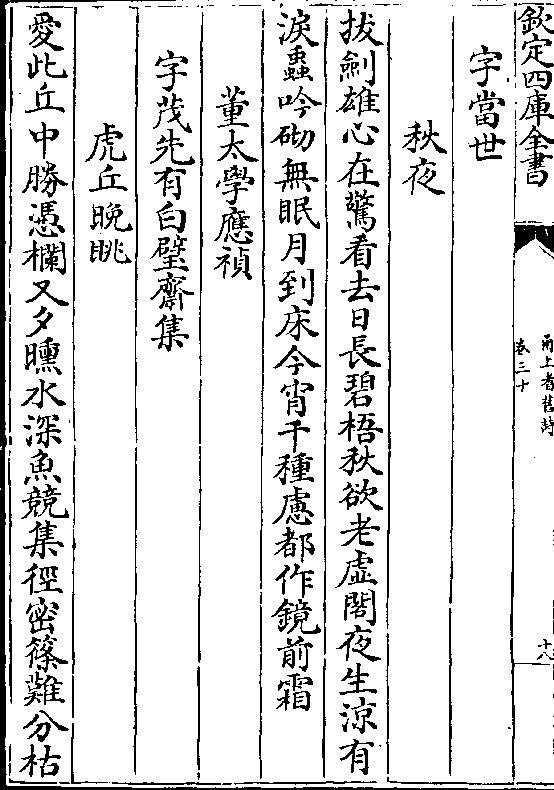 欽定四庫全書
甬上耆舊詩
卷三十
十八
字當世
秋夜
拔劍雄心在驚看去日長碧梧秋欲老虛閣夜生涼有
淚蟲吟砌無眠月到床今宵千種慮都作鏡前霜
董太學應禎
字茂先有白壁齋集
虎丘晚眺
愛此丘中勝憑欄又夕曛水深魚競集徑密篠難分枯